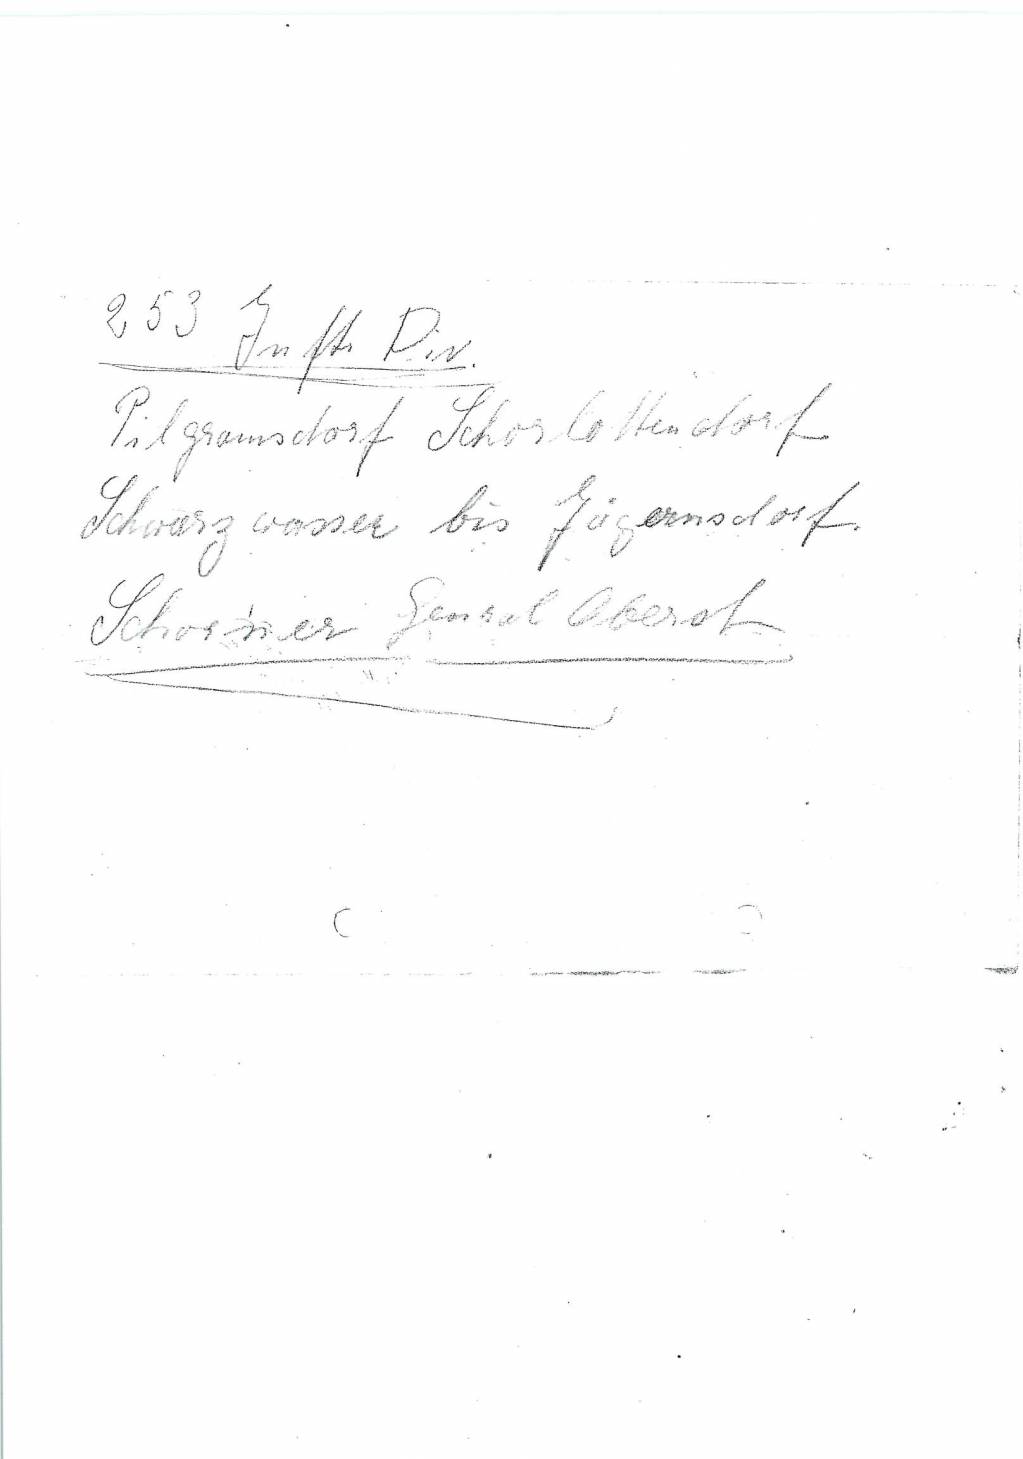 253 Inftr Div.
Pilgramsdorf Scharlottendorf
Schwarzwasser bis Jägernsdorf.
Schoerner Genral Oberst